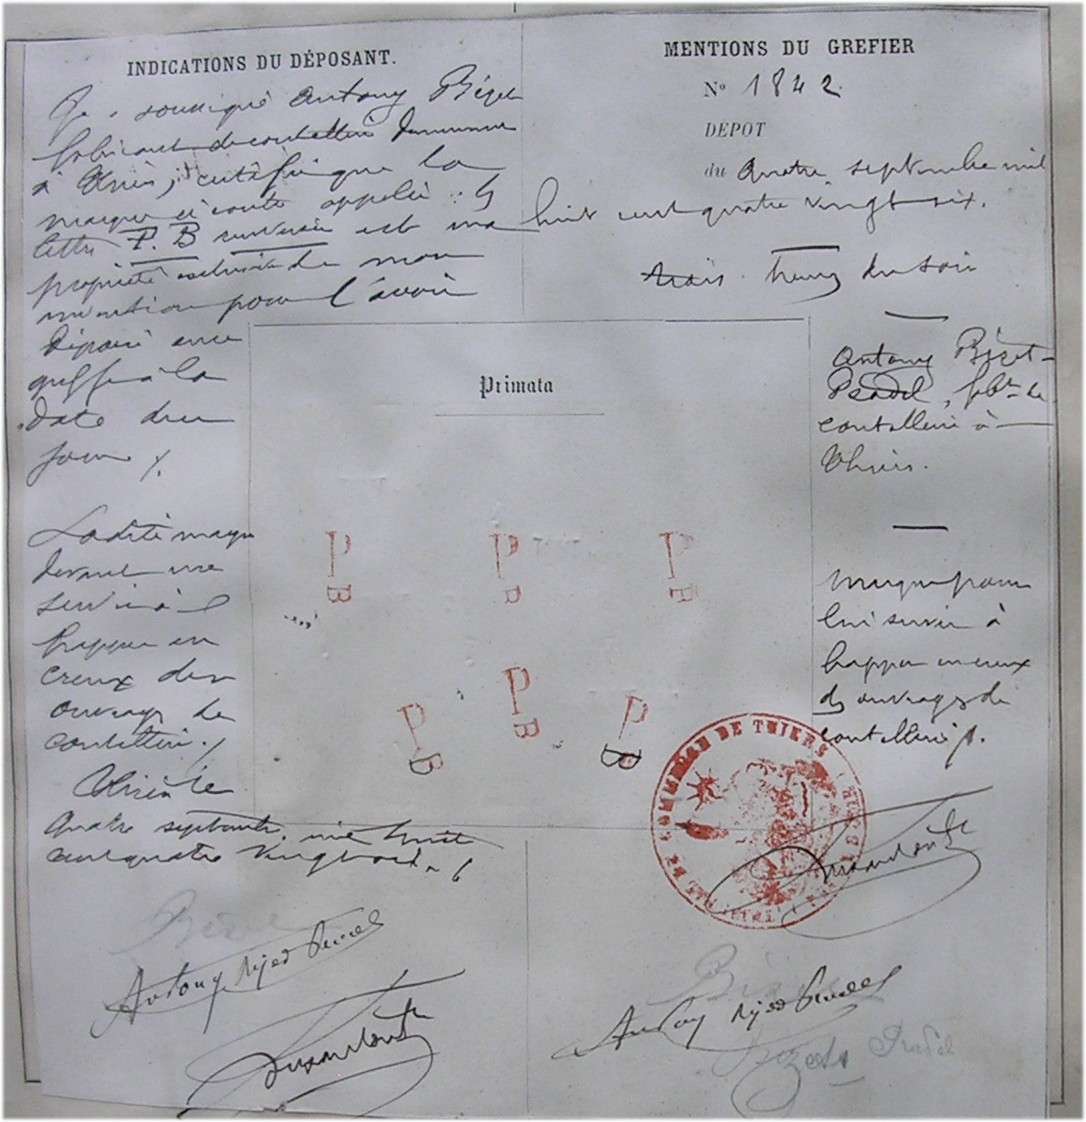 INDICATIONS DU DÉPOSANT.
Je soussigné Antony Bizet
fabricant de coutellerie demeurant
à Thiers, certifie que la
marque ci contre appelée : les
lettres P. B renversée est ma
propriété exclusive de mon
invention pour l'avoir
déposé au
greffe à la
date de ce
jour
Ladite marque
devant me
servir à
frapper en
creux des
ouvrages de
coutellerie
Thiers le
quatre septembre mil huit
cent quatre vingt six
Antony
MENTIONS DU GREFIER
No 1842.
DÉPOT
du quatre septembre mil
huit cent quatre vingt six.
trois heures du soir
Antony Bizet-
Pradel, fabt de
coutellerie à
Thiers.
Marque pour
lui servir à
frapper en creux
des ouvrages de
coutellerie
Primata
P B
P B
P B
P B
P B
P B
DE COMMERCE DE THIERS
Antony
Pradel